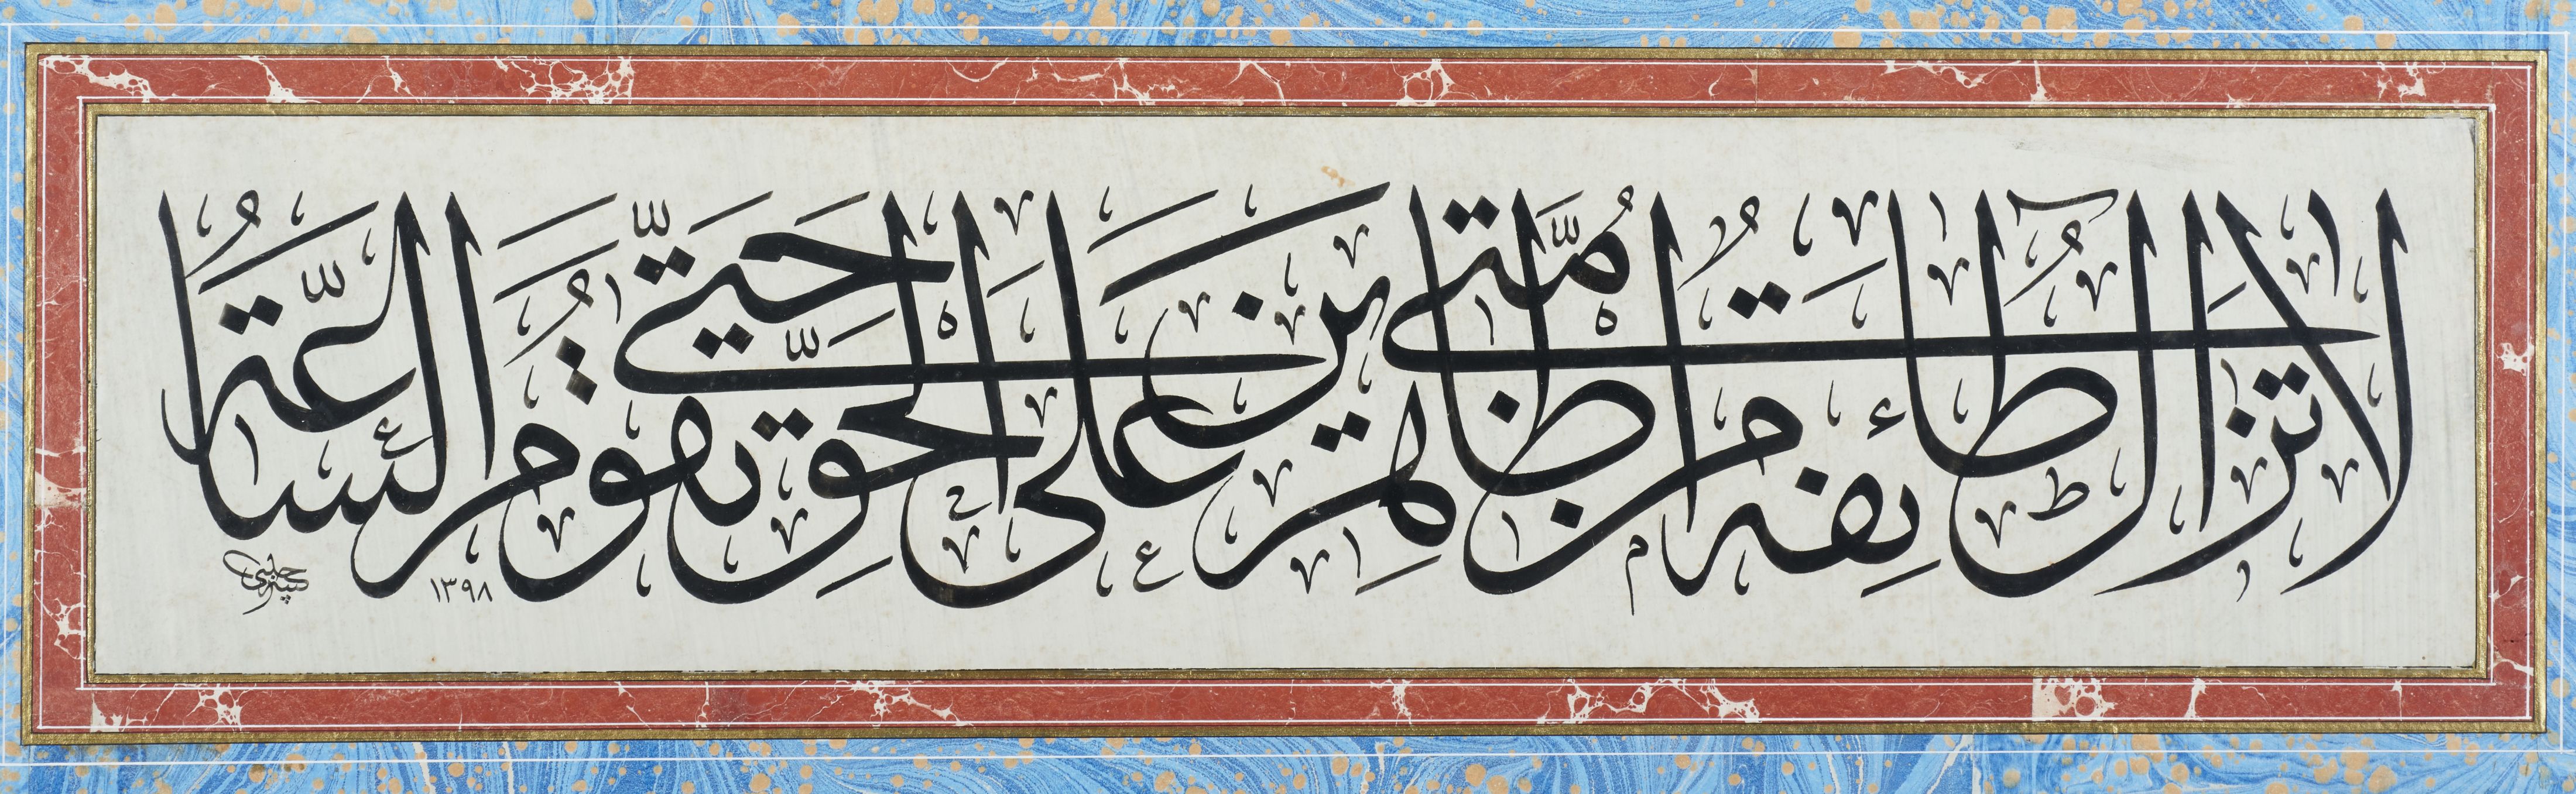 لا تزال طائفة من أمتي ظاهرين على الحق حتى تقوم الساعة
١٣٩٨